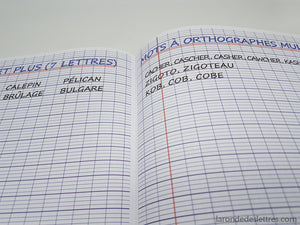 ET PLUS (7 LETTRES)
CALEPIN PÉLICAN
BRÛLAGE BULGARE
MOTS À ORTHOGRAPHES MUL
CACHER, CASCHER, CASHER, CAWCHER, KAS
ZIGOTO, ZIGOTEAU
KOB, COB, COBE
www.larondedeslettres.com